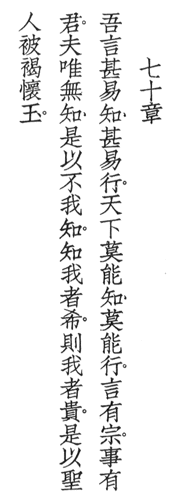 七十章
吾言甚易知甚易行。天下莫能知莫能行。言有宗。事有
君。夫唯無知。是以不我知。知我者希。則我者貴。是以聖
人被褐懷玉。